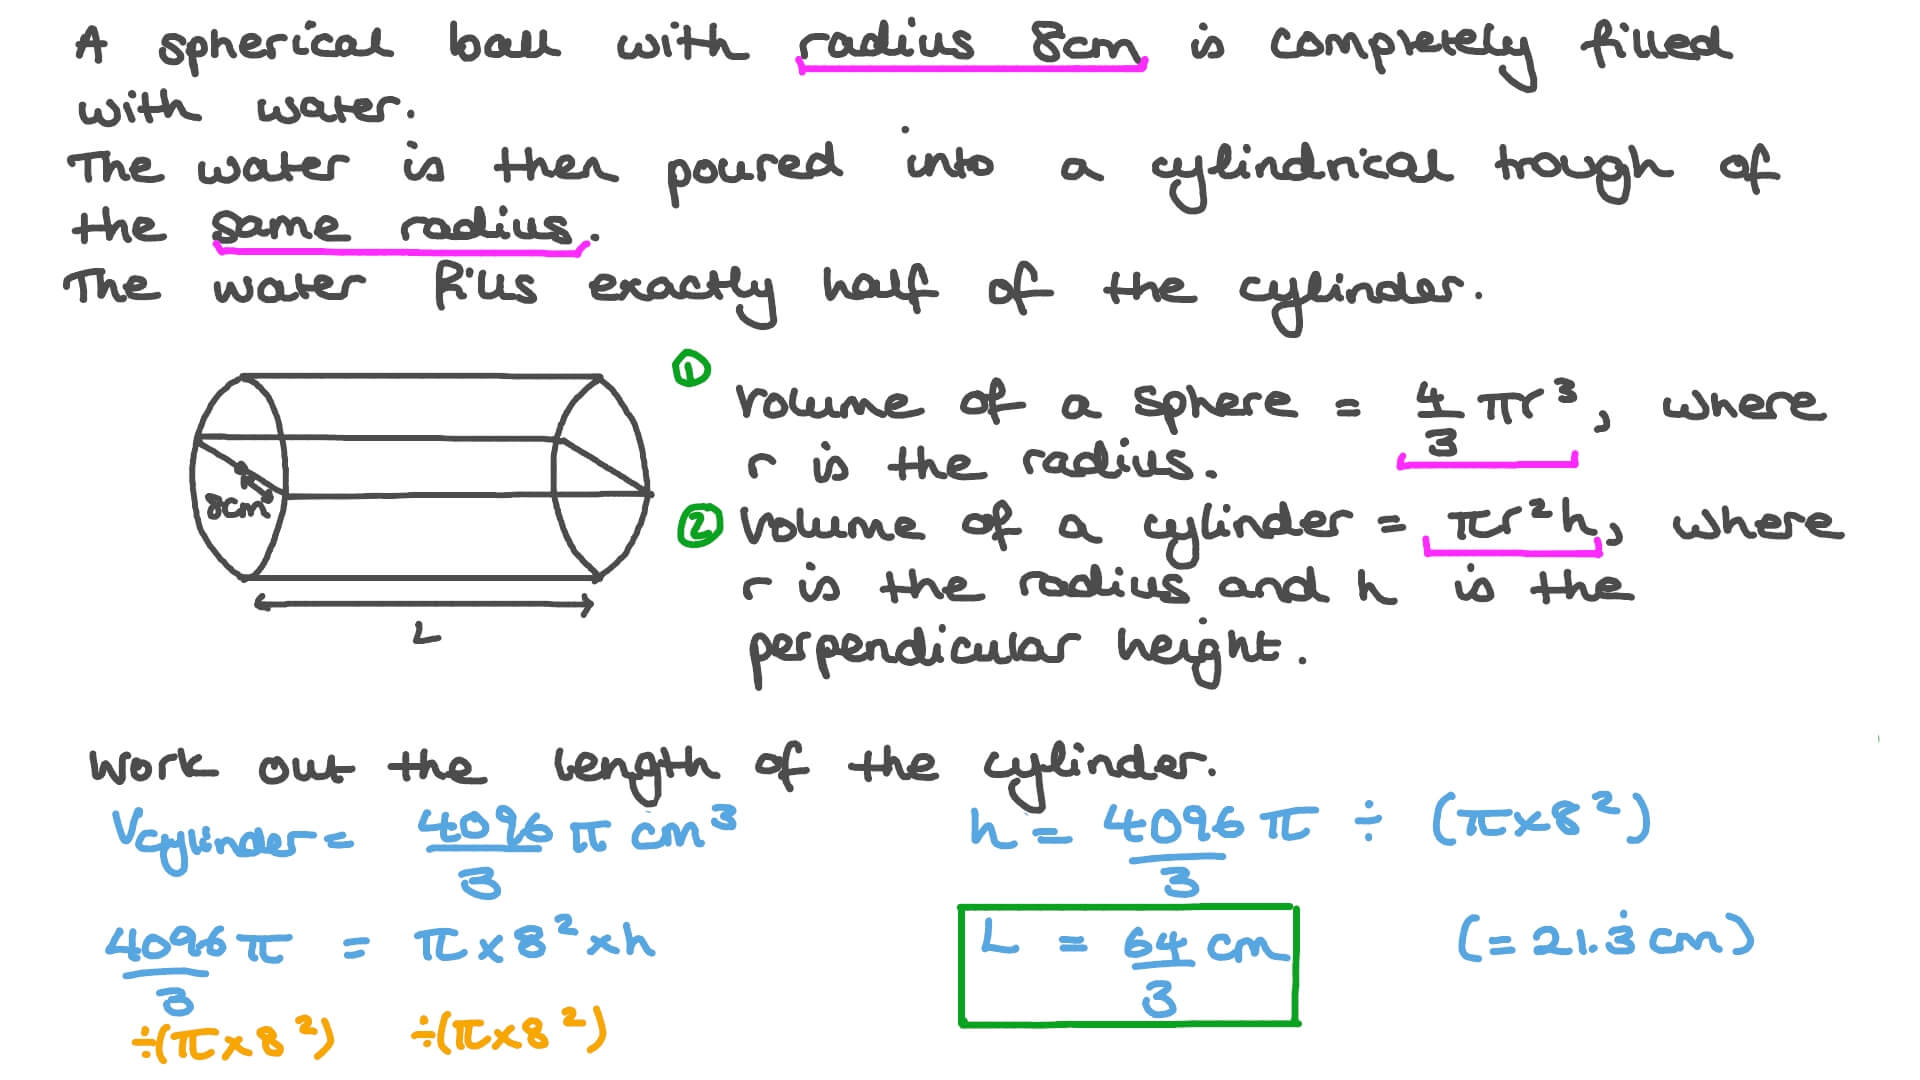 A spherical ball with radius 8cm is completely filled
with water.
The water is then poured into a cylindrical trough of
the same radius.
The water fills exactly half of the cylinder.
①
Volume of a sphere = 4/3 πr³, where
r is the radius.
② Volume of a cylinder = πr²h, where
r is the radius and h is the
perpendicular height.
8cm
L
Work out the length of the cylinder.
Vcylinder = 4096/3 π cm³
4096/3 π = π×8²×h
÷(π×8²) ÷(π×8²)
h = 4096/3 π ÷ (π×8²)
L = 64/3 cm (= 21.3̇ cm)